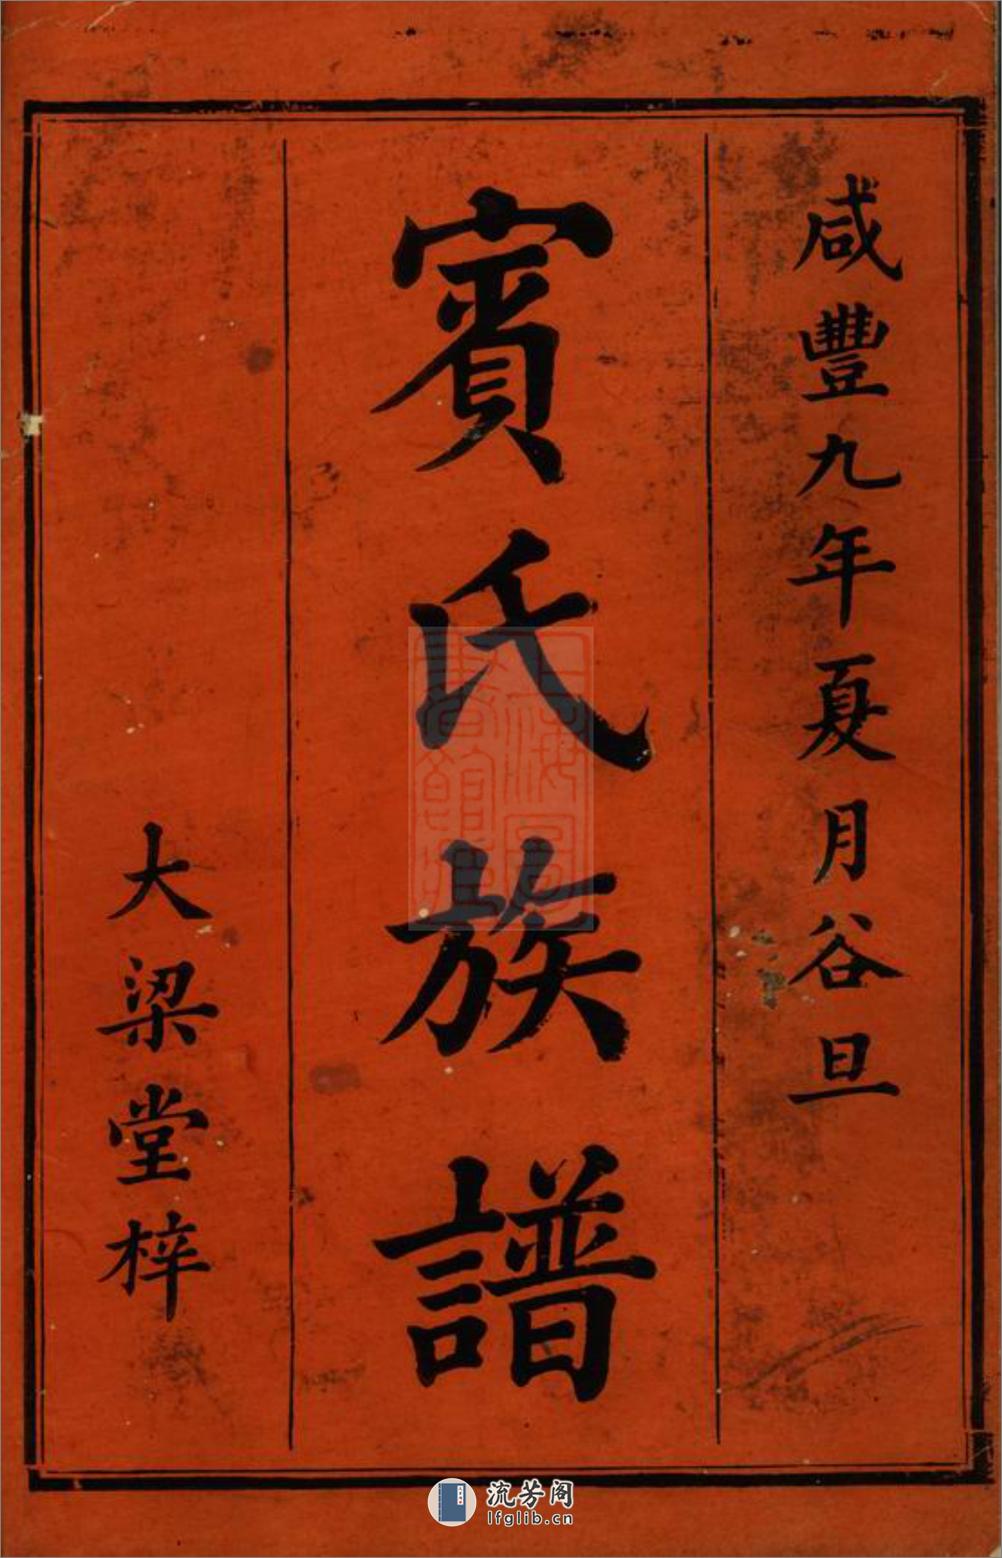 咸豐九年夏月谷旦
賓氏族譜
大梁堂梓
上海圖書館藏
流芳阁
lfglib.cn